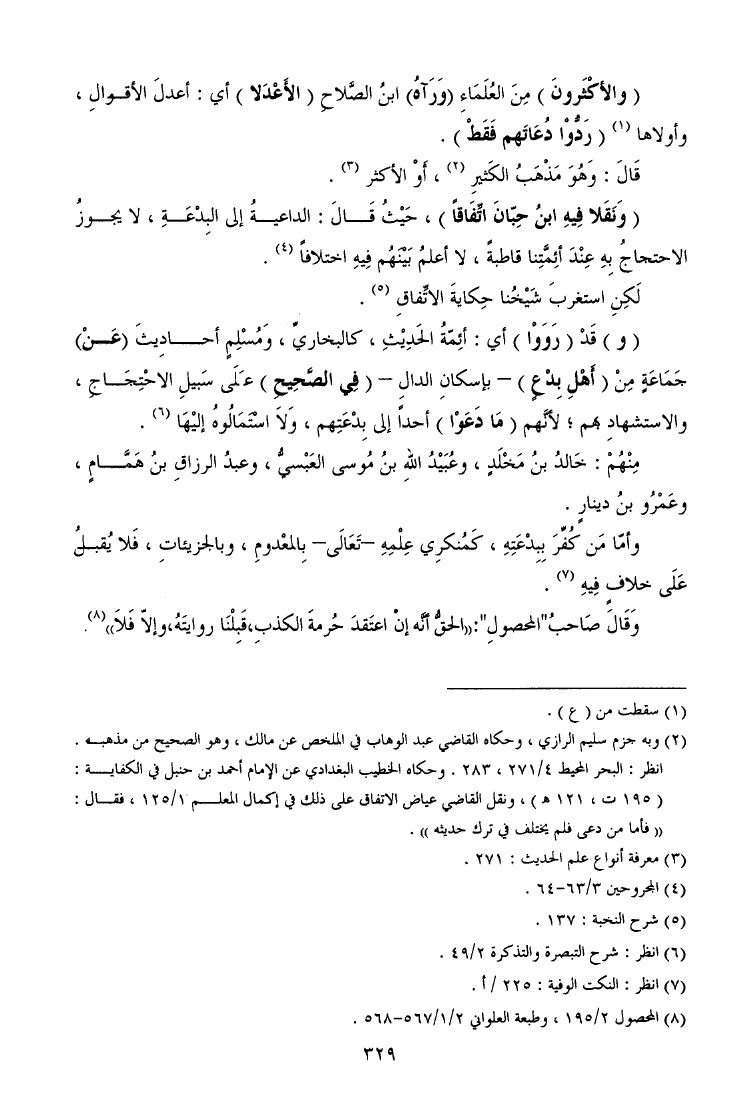 ( والأكْثَرونَ ) مِنَ العُلَمَاءِ (وَرَآهُ) ابنُ الصَّلاحِ ( الأَعْدَلا ) أي : أعدلَ الأقـوالِ ،
وأولاها (١) ( رَدُّوْا دُعَاتَهم فَقَطْ ) .
قَالَ : وَهُوَ مَذْهَبُ الكَثيرِ (٢) ، أَوْ الأكثرِ (٣) .
( وَنَقَلا فِيهِ ابنُ حِبَّانَ اتِّفَاقاً ) ، حَيْثُ قَـالَ : الداعيـةُ إلى البِدْعَـةِ ، لا يجـوزُ
الاحتجاجُ بِهِ عِنْدَ أئِمَّتِنا قاطبةً ، لا أعلمُ بَيْنَهُم فِيهِ اختلافاً (٤) .
لَكِنِ استغربَ شَيْخُنا حِكايةَ الاتِّفاقِ (٥) .
( و ) قَدْ ( رَوَوْا ) أي : أئِمَّةُ الحَدِيْثِ ، كالبخاريِّ ، وَمُسْلِمٍ أحـاديثَ (عَـنْ)
جَمَاعَةٍ مِنْ ( أَهْلِ بِدْعٍ ) – بإسكانِ الدالِ – ( فِي الصَّحِيحِ ) عَلَى سَبيلِ الاحْتِجَـاجِ ،
والاستشهادِ بهم ؛ لأنَّهم ( مَا دَعَوْا ) أحداً إلى بِدْعَتِهم ، وَلاَ اسْتَمَالُوهُ إلَيْهَا (٦) .
مِنْهُمْ : خَالدُ بنُ مَخْلَدٍ ، وعُبَيْدُ اللهِ بنُ مُوسى العَبْسيُّ ، وعبدُ الرزاقِ بنُ هَمَّـامٍ ،
وعَمْرُو بنُ دينارٍ .
وأمَّا مَن كُفِّرَ بِبِدْعَتِهِ ، كَمُنكري عِلْمِهِ –تَعَالَى– بالمعْدومِ ، وبالجزيئاتِ ، فَلا يُقبـلُ
عَلَى خلافٍ فِيهِ (٧) .
وَقَالَ صَاحبُ"المحصولِ":«الحقُّ أنَّه إنْ اعتَقدَ حُرمةَ الكذبِ،قَبِلْنَا روايتَهُ،وإلاّ فَلاَ»(٨).
(١) سقطت من ( ع ) .
(٢) وبه جزم سليم الرازي ، وحكاه القاضي عبد الوهاب في الملخص عن مالك ، وهو الصحيح من مذهبـه .
انظر : البحر المحيط ٢٧١/٤ ، ٢٨٣ . وحكاه الخطيب البغدادي عن الإمام أحمد بن حنبل في الكفايـة :
( ١٩٥ ت ، ١٢١ هـ ) ، ونقل القاضي عياض الاتفاق على ذلك في إكمال المعلـم ١٢٥/١ ، فقـال :
« فأما من دعى فلم يختلف في ترك حديثه » .
(٣) معرفة أنواع علم الحديث : ٢٧١ .
(٤) المجروحين ٦٣/٣–٦٤ .
(٥) شرح النخبة : ١٣٧ .
(٦) انظر : شرح التبصرة والتذكرة ٤٩/٢ .
(٧) انظر : النكت الوفية : ٢٢٥ / أ .
(٨) المحصول ١٩٥/٢ ، وطبعة العلواني ٥٦٧/١/٢–٥٦٨ .
٣٢٩